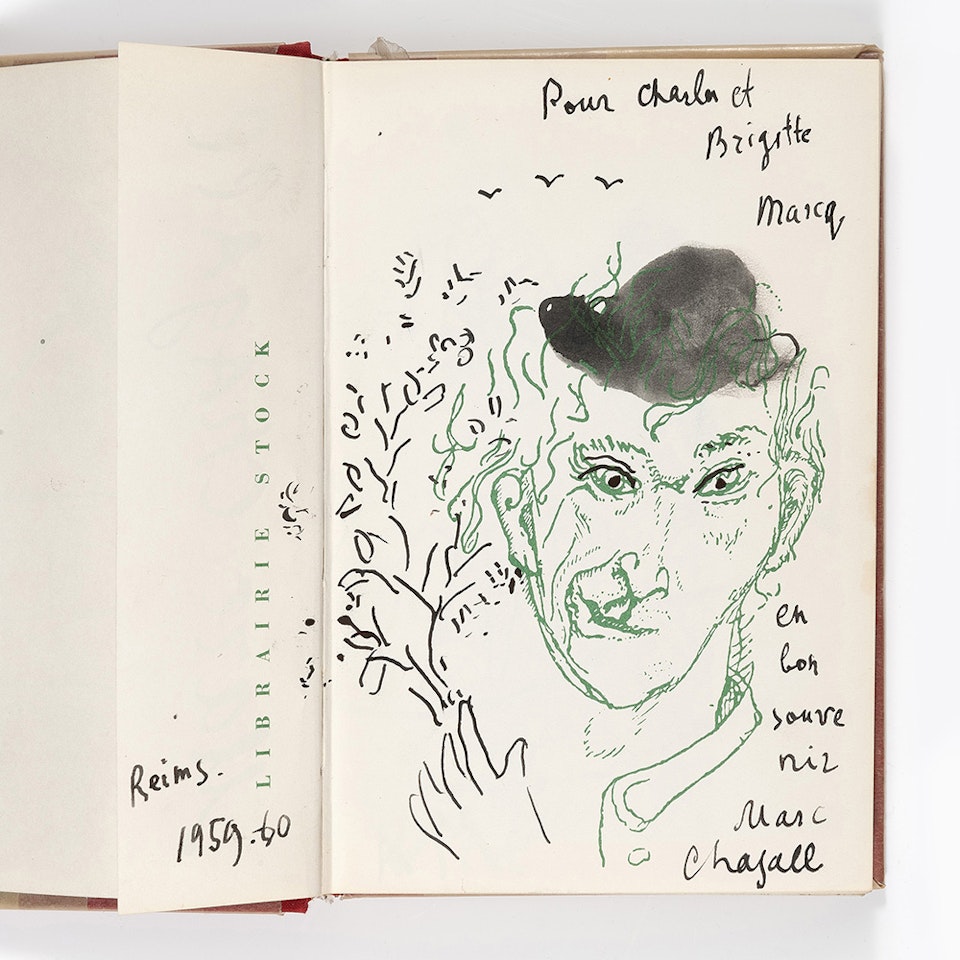 LIBRAIRIE STOCK
Reims.
1959.60
Pour Charles et
Brigitte
Marcq
en
bon
souve
nir
Marc
Chagall